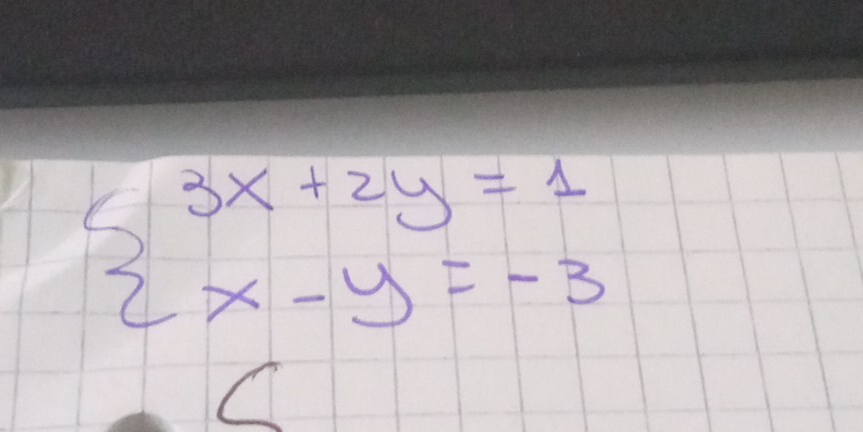 3x + 2y = 1
x - y = - 3